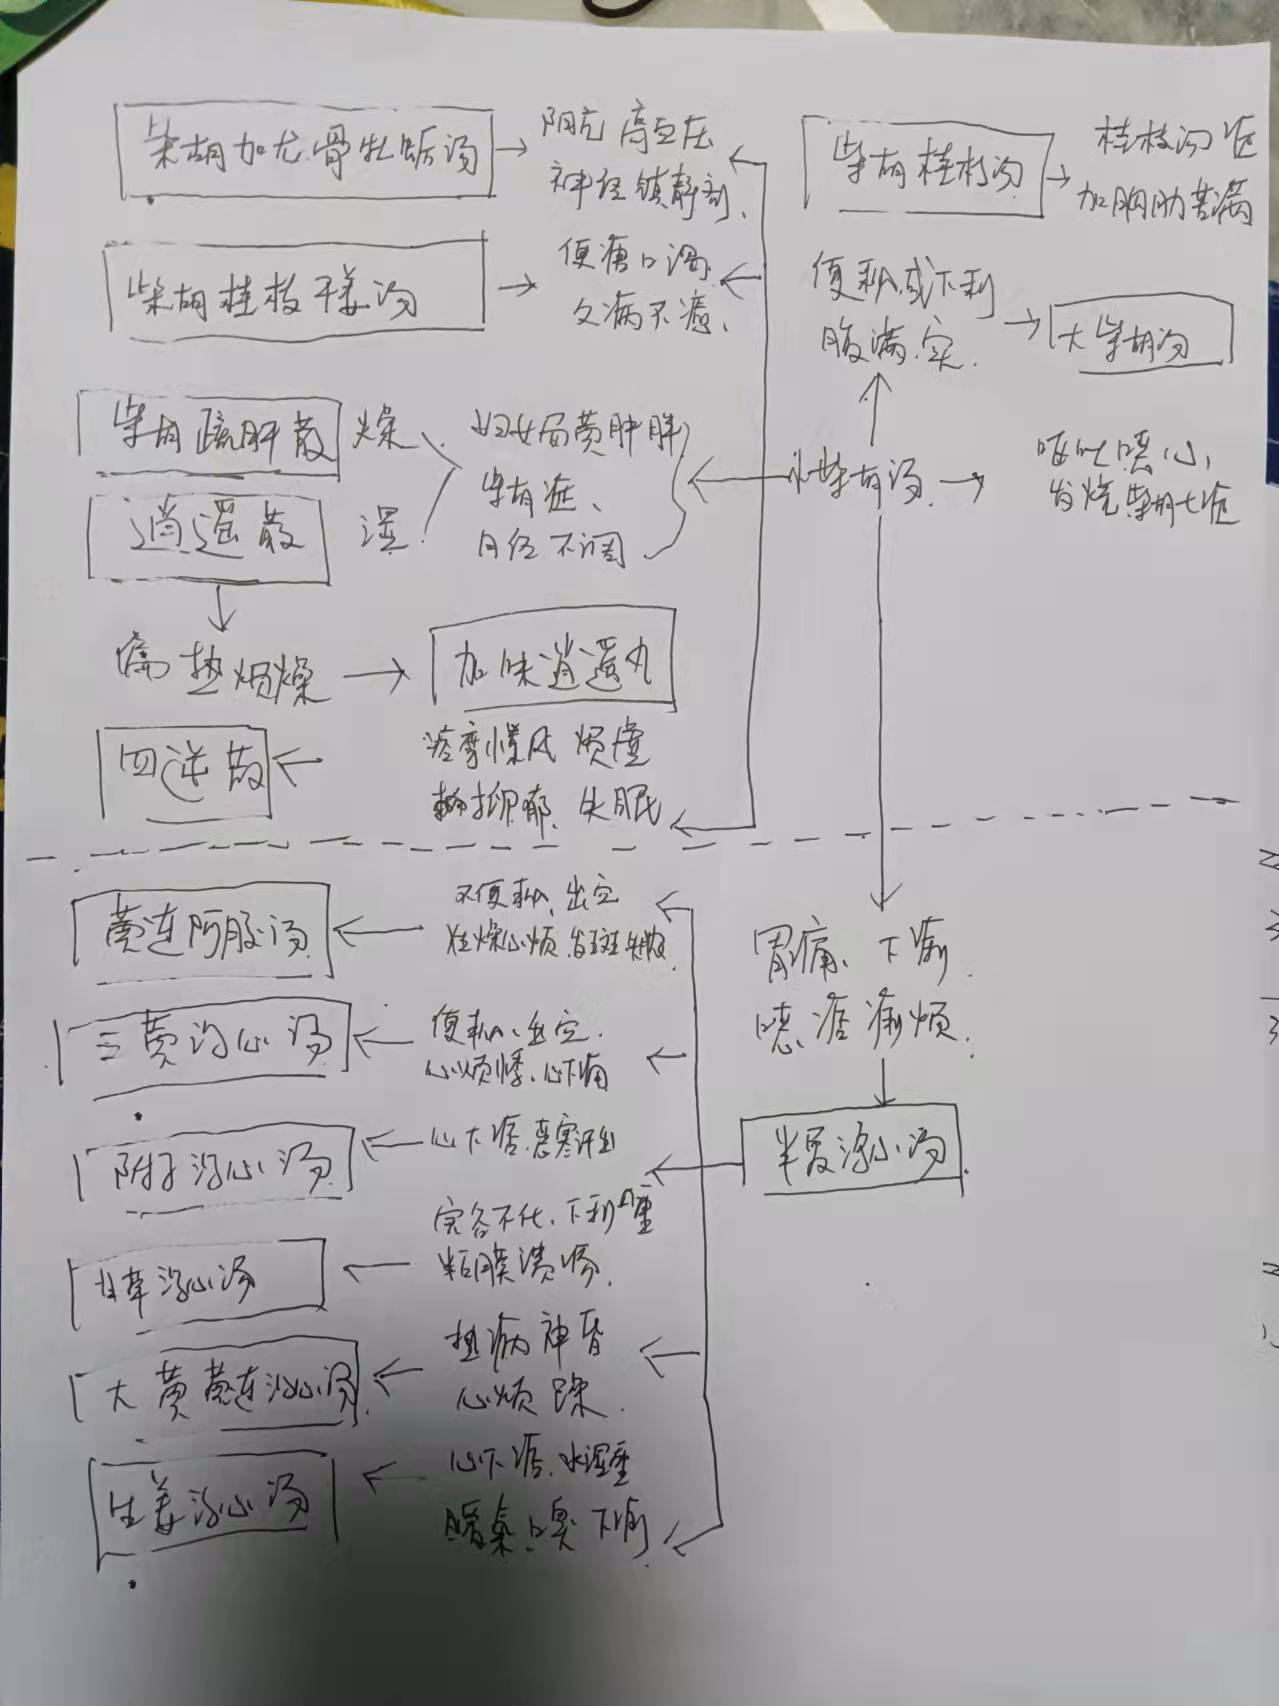 柴胡加龙骨牡蛎汤
阴亢 高血压
神经镇静剂、
柴胡桂枝汤
桂枝汤证
加胸肋苦满
柴胡桂枝干姜汤
便溏口渴、
久病不愈、
便秘或下利
腹满、实、
大柴胡汤
柴胡疏肝散 燥
逍遥散 湿
妇女 黄肿胖
柴胡症、
月经不调
小柴胡汤
呕吐恶心,
发烧柴胡七证
偏热烦燥
加味逍遥丸
四逆散
痉挛 烦虚
抑郁、失眠
黄连阿胶汤
不便秘、出血
狂燥心烦、发斑
胃痛、下痢、
噁 痞痛烦、
三黄泻心汤
便秘、出血、
心烦悸、心下痛
附子泻心汤
心下痞、恶寒汗出
半夏泻心汤
甘草泻心汤
完谷不化、下利重
粘膜溃疡、
大黄黄连泻心汤
热病神昏
心烦躁、
生姜泻心汤
心下痞、水湿重
嗳气口臭 下痢